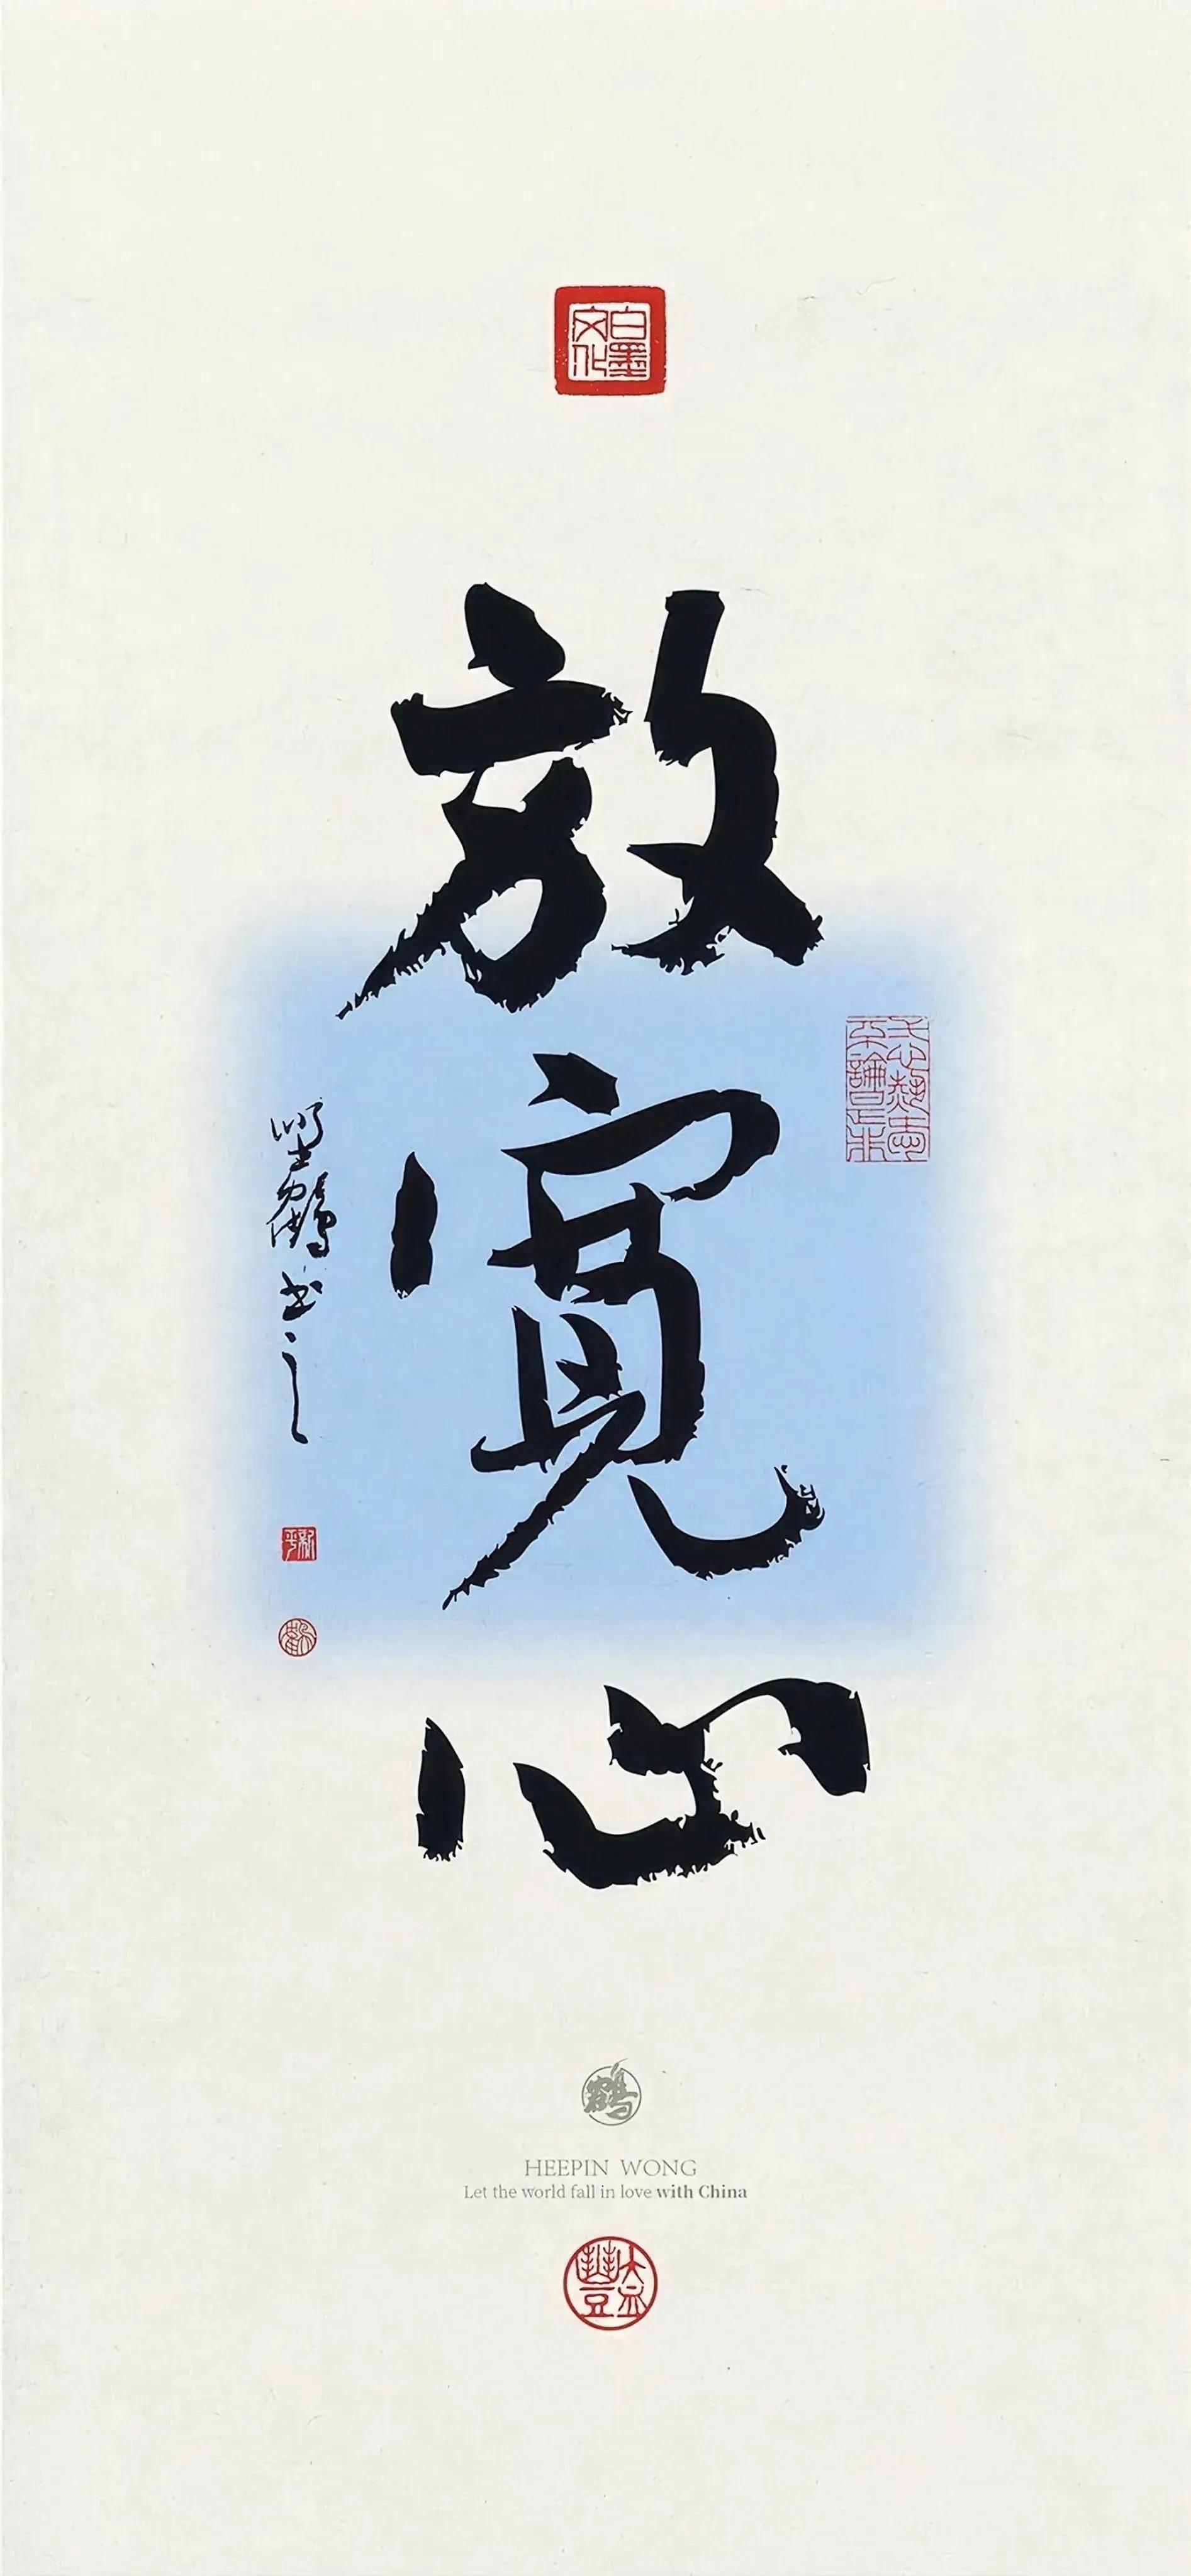 白墨
文化
放
寬
心
鶴
書
之
鶴
HEEPIN WONG
Let the world fall in love with China